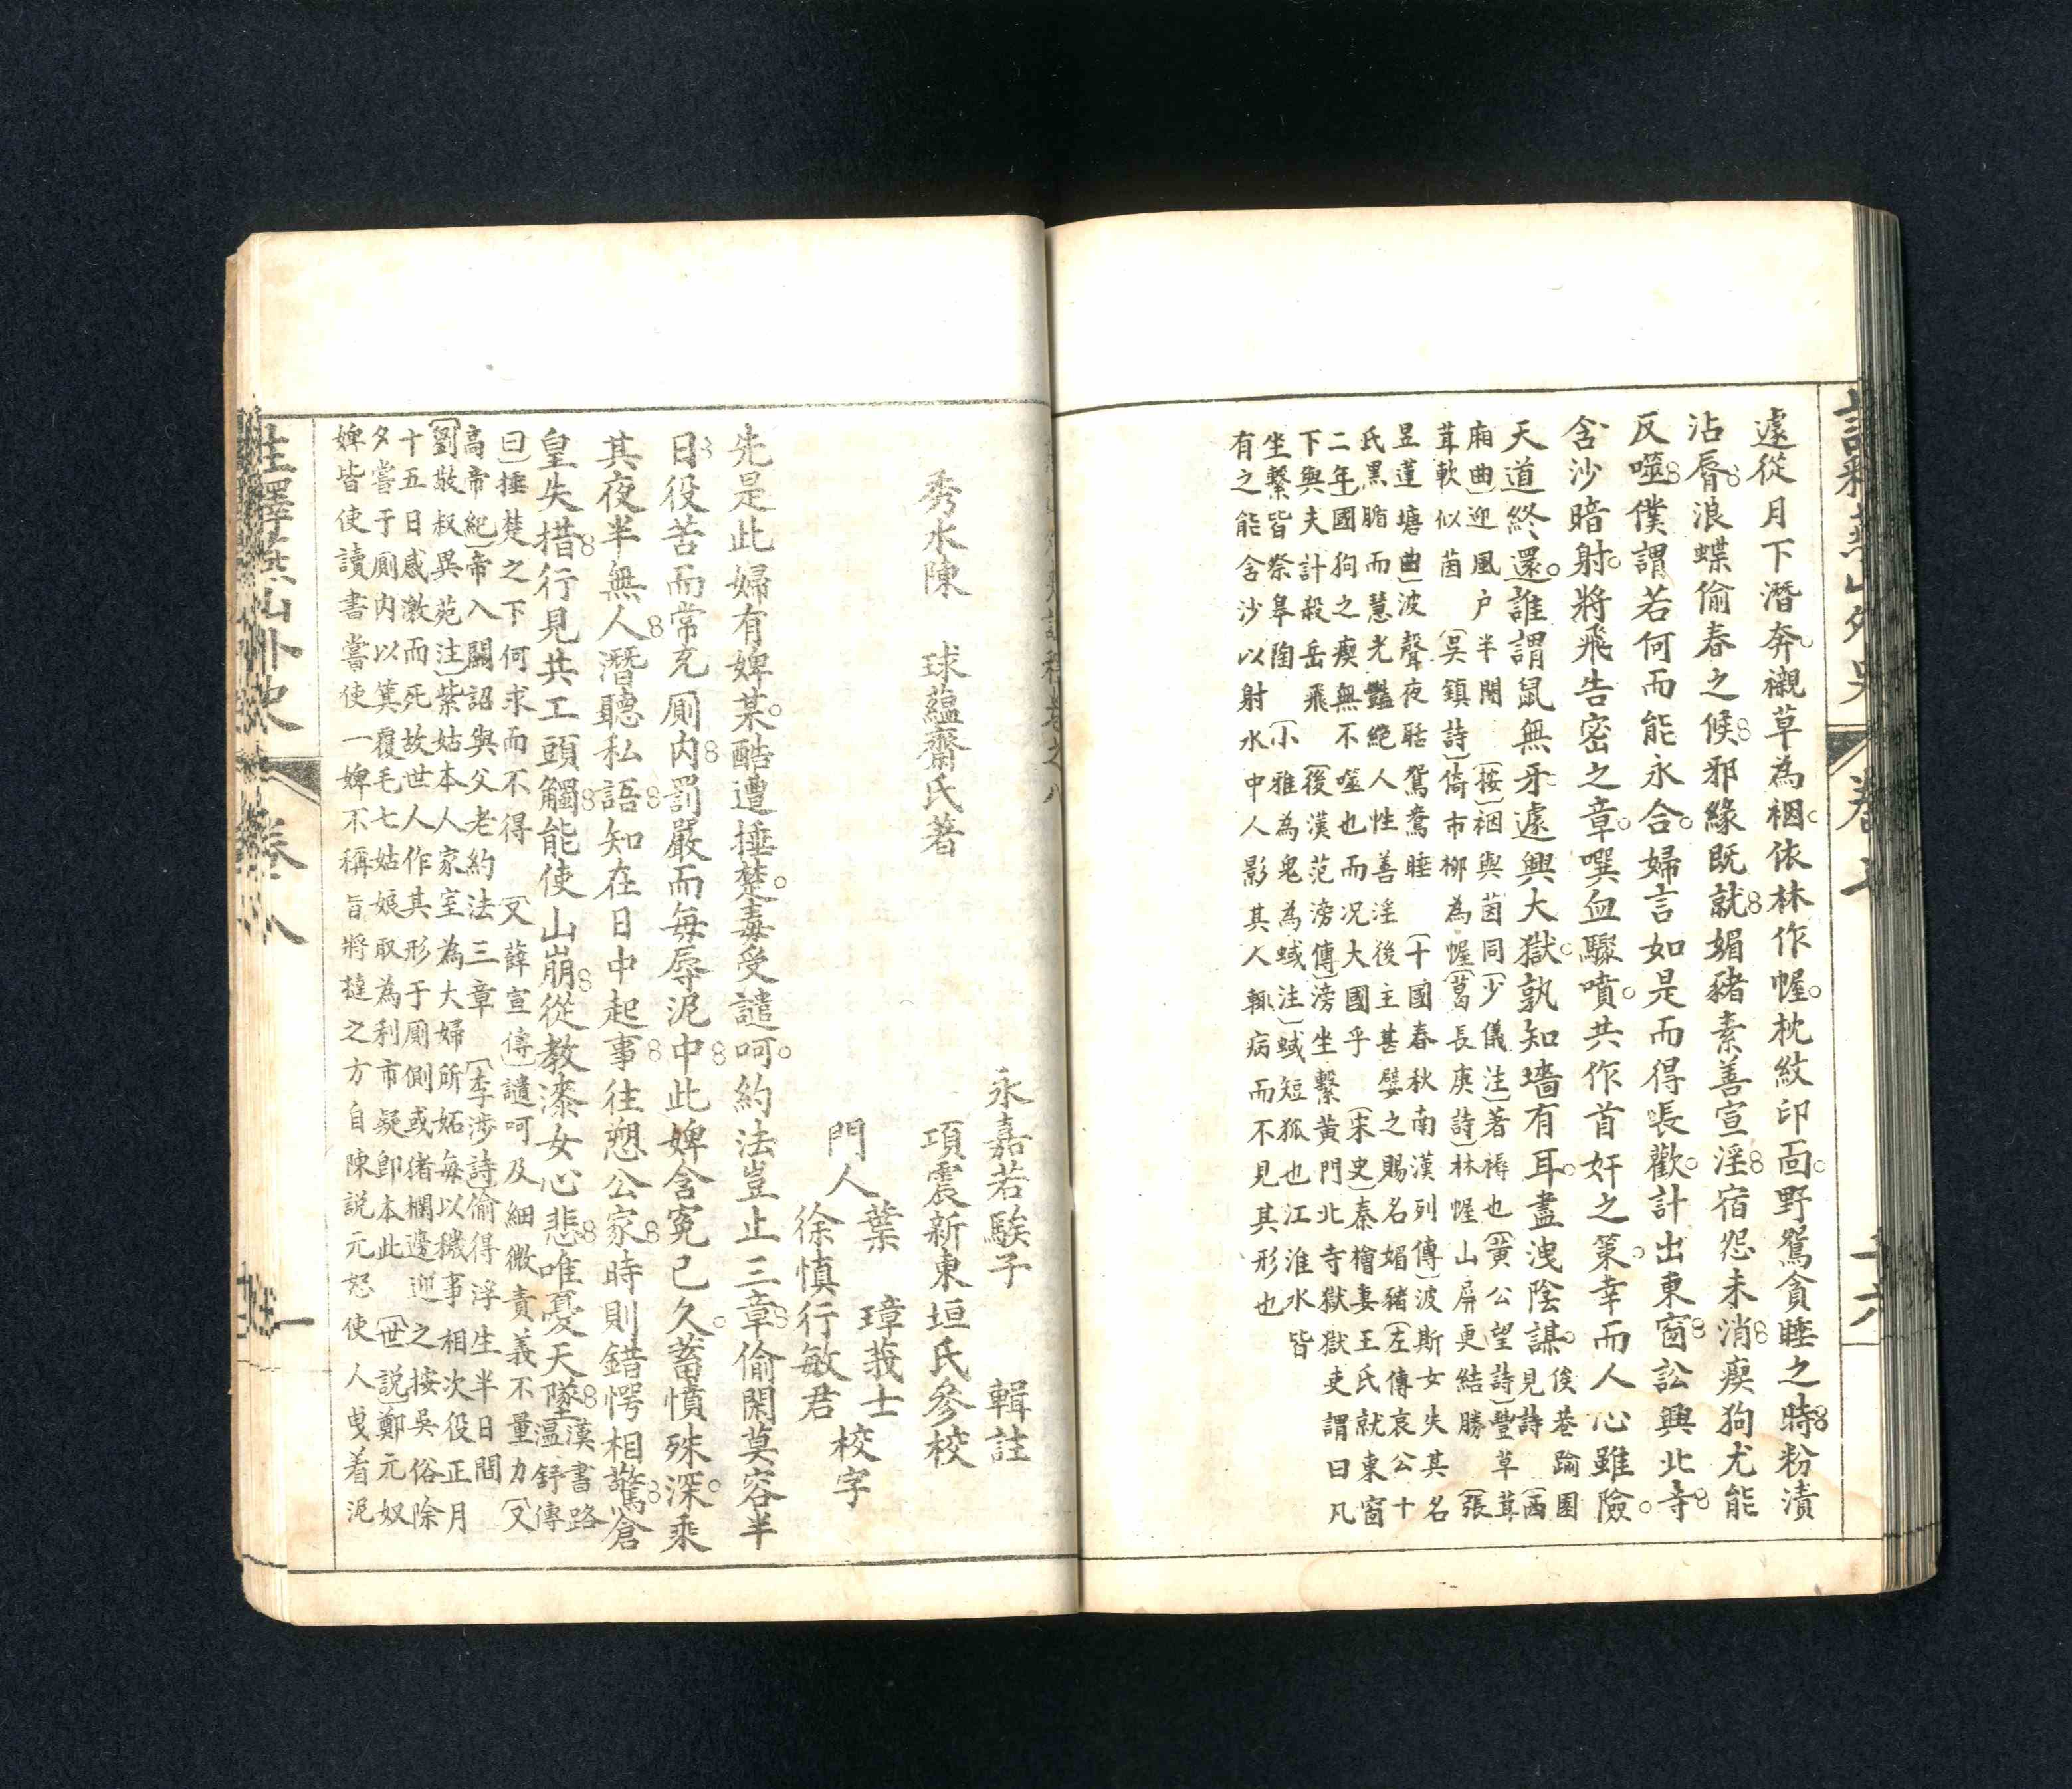 遽從月下潛奔。襯草為裀。依林作幄。枕紋印面。野鴛貪睡之時。粉漬
沾脣。浪蝶偷春之候。邪緣既就。媚豬素善宣淫。宿怨未消。瘈狗尤能
反噬。僕謂若何而能永合。婦言如是而得長歡。計出東窗。訟興北寺。
含沙暗射。將飛告密之章。噀血驟噴。共作首奸之策。幸而人心雖險。
天道終還。誰謂鼠無牙。遽興大獄。孰知墻有耳。盡洩陰謀。
俟巷踰園
見詩〔西
廂曲〕迎風户半開 〔按〕裀與茵同〔少儀注〕著褥也〔黄公望詩〕豐草茸
茸軟似茵 〔吳鎮詩〕倚市柳為幄〔葛長庚詩〕林幄山屏更結勝〔張
昱蓮塘曲〕波聲夜聒鴛鴦睡 〔十國春秋南漢列傳〕波斯女失其名
氏黑腯而慧光豔絶人性善淫後主甚嬖之賜名媚豬〔左傳哀公十
二年〕國狗之瘈無不噬也而况大國乎〔宋史〕秦檜妻王氏就東窗
下與夫計殺岳飛 〔後漢范滂傳〕滂坐繫黄門北寺獄獄吏謂曰凡
坐繫皆祭皋陶 〔小雅為鬼為蜮注〕蜮短狐也江淮水皆
有之能含沙以射水中人影其人輒病而不見其形也
永嘉若騃子 輯註
秀水陳 球蘊齋氏著 項震新東垣氏參校
門人 葉 璋莪士 校字
徐慎行敏君
先是此婦有婢某。酷遭捶楚。毒受譴呵。約法豈止三章。偷閑莫容半
日。役苦而常充厠内。罰嚴而每辱泥中。此婢含冤已久。蓄憤殊深。乘
其夜半無人。潛聽私語。知在日中起事。往愬公家。時則錯愕相驚。倉
皇失措。行見共工頭觸。能使山崩。從教漆女心悲。唯憂天墜。
漢書路
温舒傳
曰〕捶楚之下何求而不得 〔又薛宣傳〕譴呵及細微責義不量力〔又
高帝紀〕帝入關詔與父老約法三章 〔李涉詩〕偷得浮生半日間
〔劉敬叔異苑注〕紫姑本人家室為大婦所妬每以穢事相次役正月
十五日感激而死故世人作其形于厠側或猪欄邊迎之按吳俗除
夕嘗于厠内以箕覆毛七姑娘取為利市疑卽本此 〔世説〕鄭元奴
婢皆使讀書嘗使一婢不稱旨將撻之方自陳説元怒使人曳着泥
註釋燕山外史 卷八 一